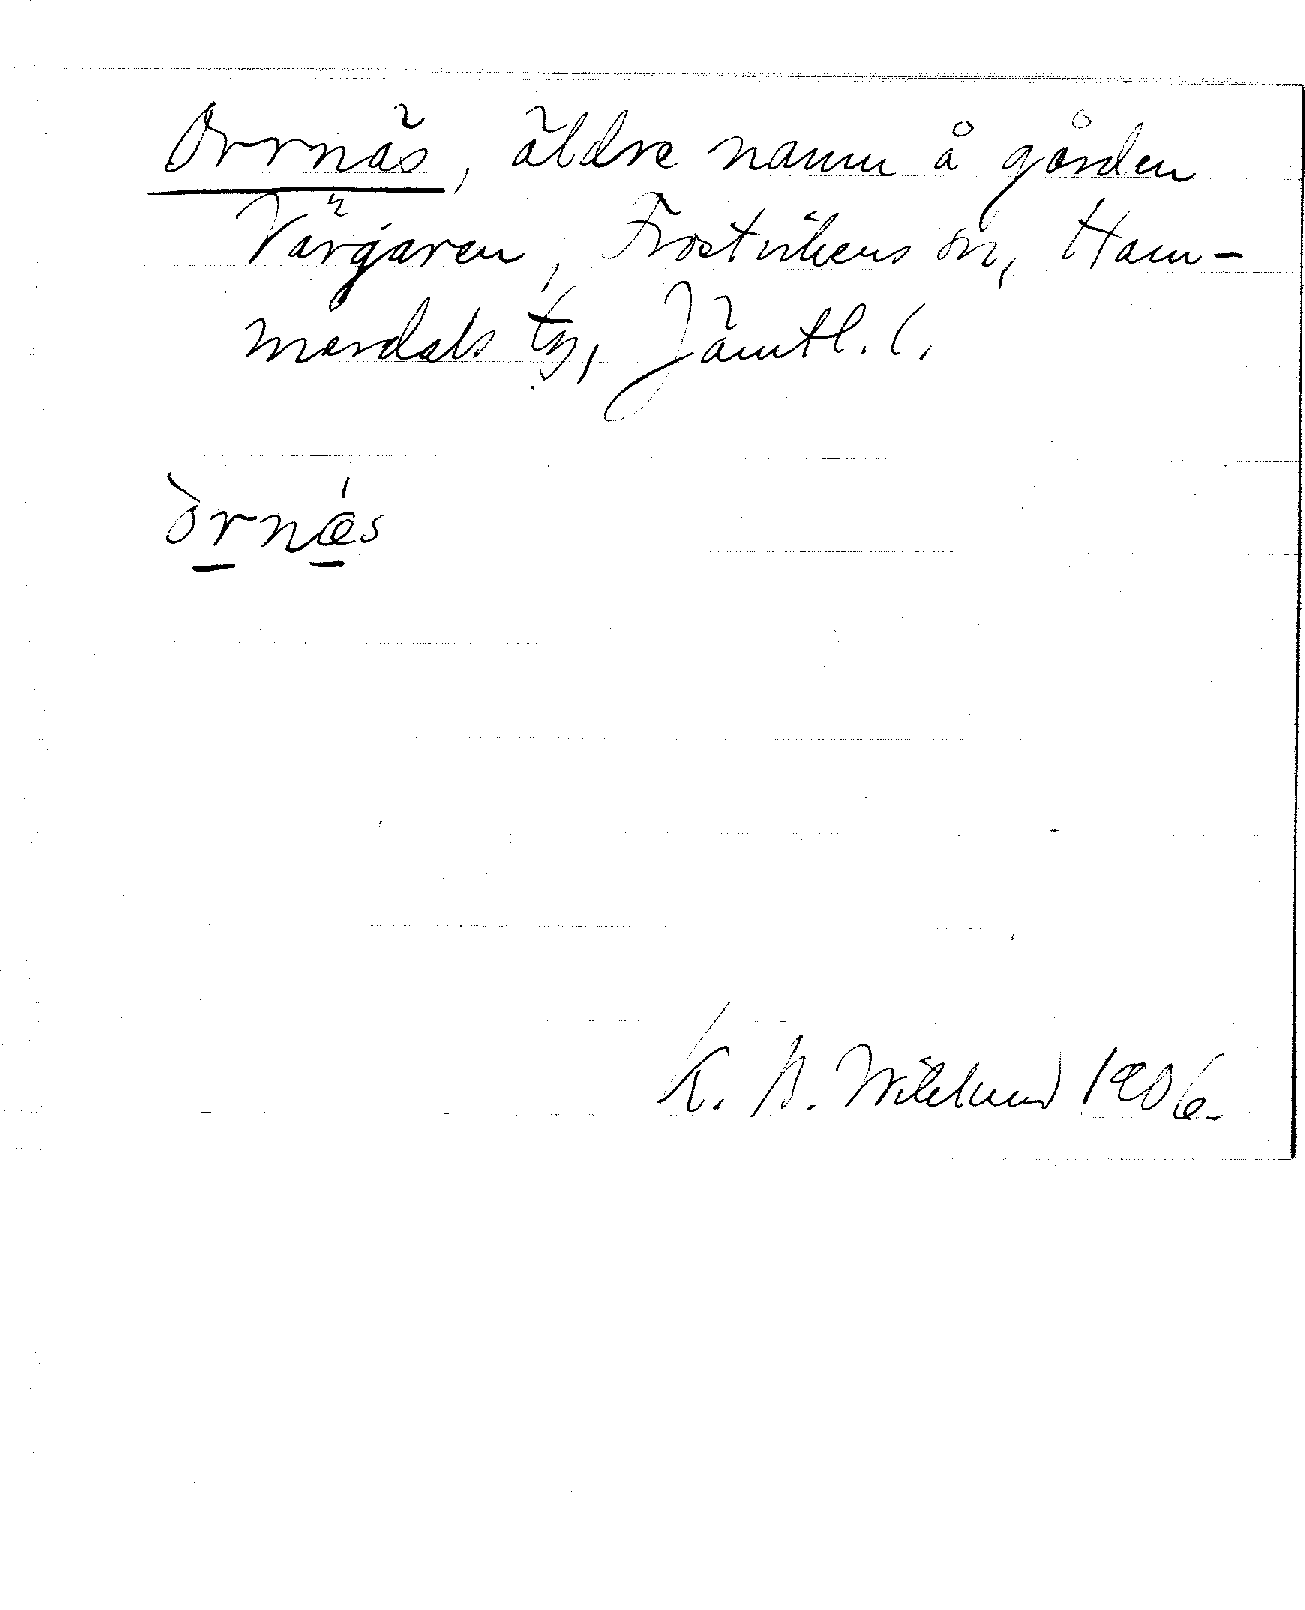 Orrnäs, äldre namn å gården
Värgaren, Frostvikens sn, Ham-
merdals tg, Jämtl. l.
òrnǽs
K. B. Wiklund 1906.